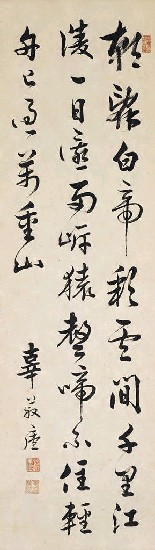 朝辭白帝彩雲間千里江
陵一日還兩岸猿聲啼不住輕
舟已過萬重山